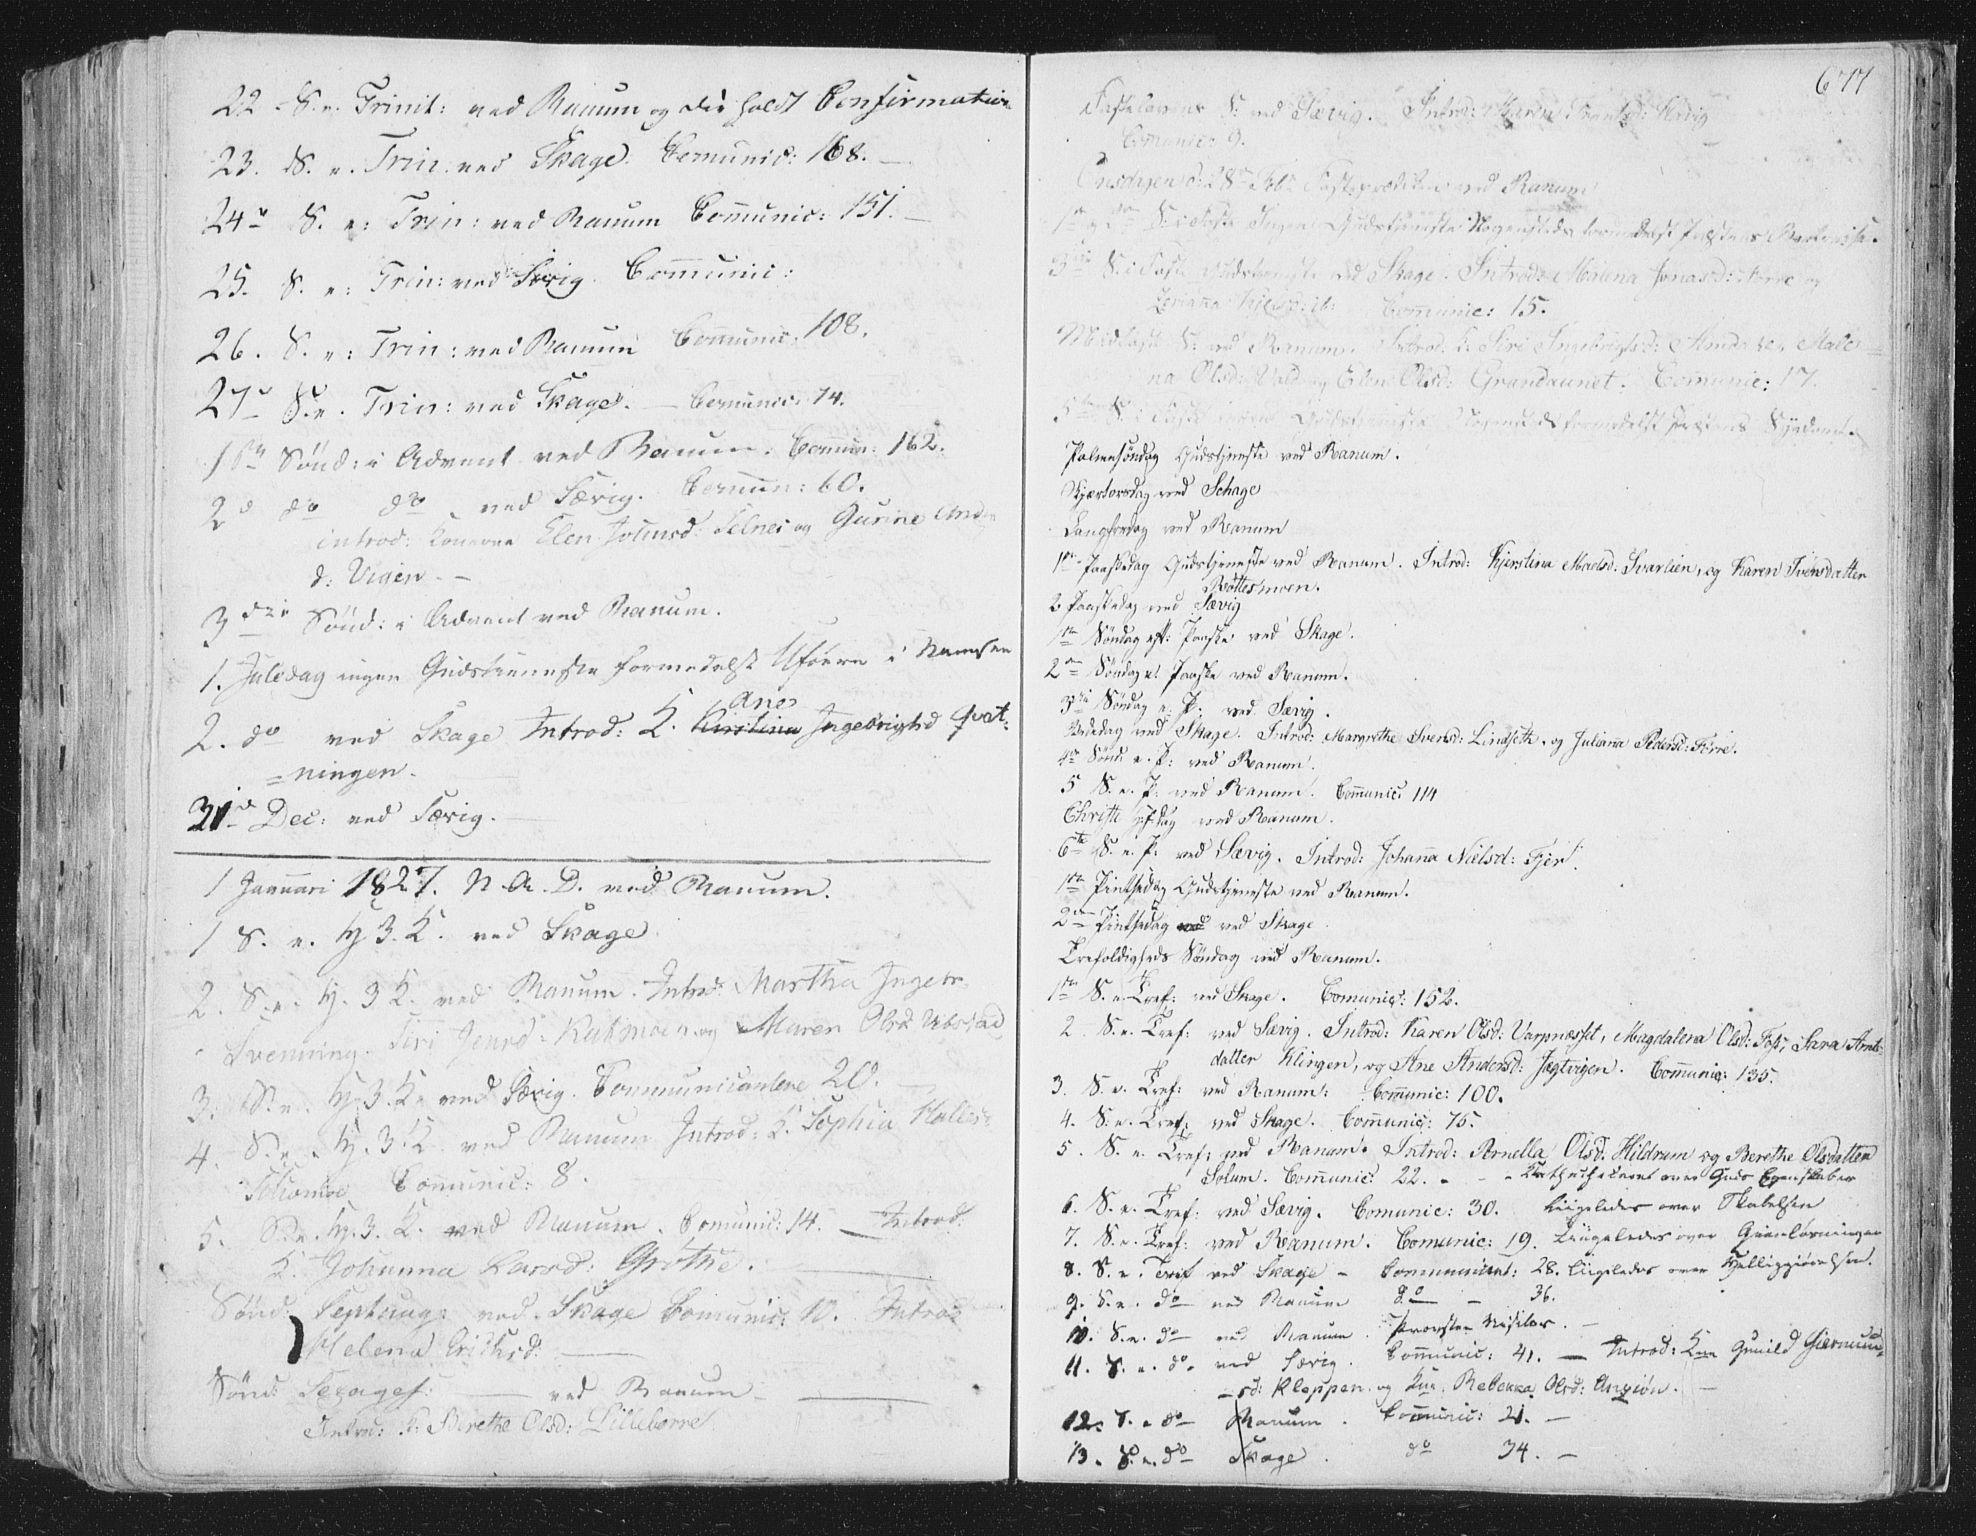 22 - S. e. Trinit: ved Ranum og der holdt Confirmation
23. S. e. Trin. ved Skage. Comunic: 168. —
24de S. e: Trin: ved Ranum Comunic: 151. —
25. S. e: Trin: ved Særig. Comunic:
26. S. e: Trin: ved Ranum Comunic: 108.
27de S. e. Trin: ved Skage. — Comunic: 74.
1ste Sönd: i Advent ved Ranum. Comun: 162.
2d do do ved Særig. Comun: 60.
introd: Konerne Elen Johnsd: Selnes og Gurine And:
d: Vigen. —
3die Sönd: i Advent ved Ranum.
1. Juledag ingen Gudstieneste formedelst Uføre i Namsen
Ane
2. do ved Skage Introd: K. Kirstina Ingebrigtsd Qvat:
=ningen.
31d Dec: ved Særig. —
1 Januari 1827. N. A. D. ved Ranum.
1 S. e. H 3. K. ved Skage
2. S. e. H. 3 K. ved Ranum. Introd: Martha Ingebr.
Svenning. Siri Jensd: og Maren Olsd. Ubstad
3. S. e. H. 3. K. ved Særig. Communicantere 20.
4. S. e. H. 3. K. ved Ranum Introd: K. Sophia
Comunic: 8.
5. S. e. H. 3. K. ved Ranum. Comunic: 14. — Introd:
K. Johanna Larsd: Grøthe. —
Sönd: Septuag: ved Skage Comunic: 10. Introd
Helena Erichsd: —
Sönd: Sexages: — ved Ranum — —
Introd: K: Berethe Olsd: Lilleberre
677
Fastelavns S: ved Særig. Introd: Karen Særig
Comunic: 9.
Onsdagen d: 28de Feb: Fasteprædiken ved Ranum
1ste og 2den S: i Faste Ingen Gudstjeneste Nogensteds formedelst Præstens
3die S: i Faste Gudstjeneste ved Skage. Introd: Malena Jonasd: og
Comunic: 15.
Midfaste S: ved Ranum. Introd: K: Siri Ingebrigtsd: Malе=
na Olsd: og Elen Olsd: Grandaunet. Comunic: 17.
5te S: i Faste ingen Gudstjeneste Nogensteds formedelst Præstens Sygdom.
Palmesöndag Gudstjeneste ved Ranum.
Skjærtorsdag ved Schage
Langfredag ved Ranum
1ste Paaskedag Gudstjeneste ved Ranum. Introd: Kjerstina Madsd: Svarlien, og Karen Svensdatter
Röttesmoen.
2 Paaskedag ved Særig
1ste Söndag eft: Paaske ved Skage.
2den Söndag e: Paaske ved Ranum.
3die Söndag e: P: ved Særig.
Bededag ved Skage. Introd: Margrethe Svensd: Lindseth, og Juliana Pedersd: Förre.
4de Sönd: e. P: ved Ranum.
5 S. e. P: ved Ranum. Comunic: 114
Christi Hfdag ved Ranum.
6te S. e. P: ved Særig. Introd: Johanna Nielsd: Fjer.
1ste Pintsedag Gudstjeneste ved Ranum.
2den Pintsedag ved ved Skage.
Trefoldigheds Söndag ved Ranum.
1ste S. e. Tref: ved Skage. Comunic: 152.
2 S. e. Tref: ved Særig. Introd: Karen Olsd: Varpnæsset, Magdalena Olsd: Foss, Sara Arnts
datter Klingen, og Ane Andersd: Jægtvigen. Comunic: 135.
3. S. e. Tref: ved Ranum: Comunic: 100.
4. S. e. Tref: ved Skage. Comunic: 75.
5. S. e. Tref: ved Ranum. Introd: Arnella Olsd: Hildrum og Berethe Olsdatter
Solum. Comunic: 22. - - - Kathechiseret over Guds Egenskaber
6. S. e. Tref: ved Særig. Comunic: 30. Liigeledes over Skabelsen
7. S. e. Tref: ved Ranum. Comunic: 19. Liigeledes over Gienløsningen
8. S. e. Tref ved Skage - Communicant: 28. Liigeledes over Helliggiørelsen.
9. S. e. do ved Ranum do — 36.
10. S. e. do ved Ranum. Provsten Visiterer. —
11. S. e. do. ved Særig. Comunic: 41. — Introd: Kne Gunild Giermun=
=sd: Kleppen og Kne. Rebekka Olsd: Anziøn. —
12. S. e do Ranum. Comunic: 21. —
13. S. e. do Skage. do 34. —